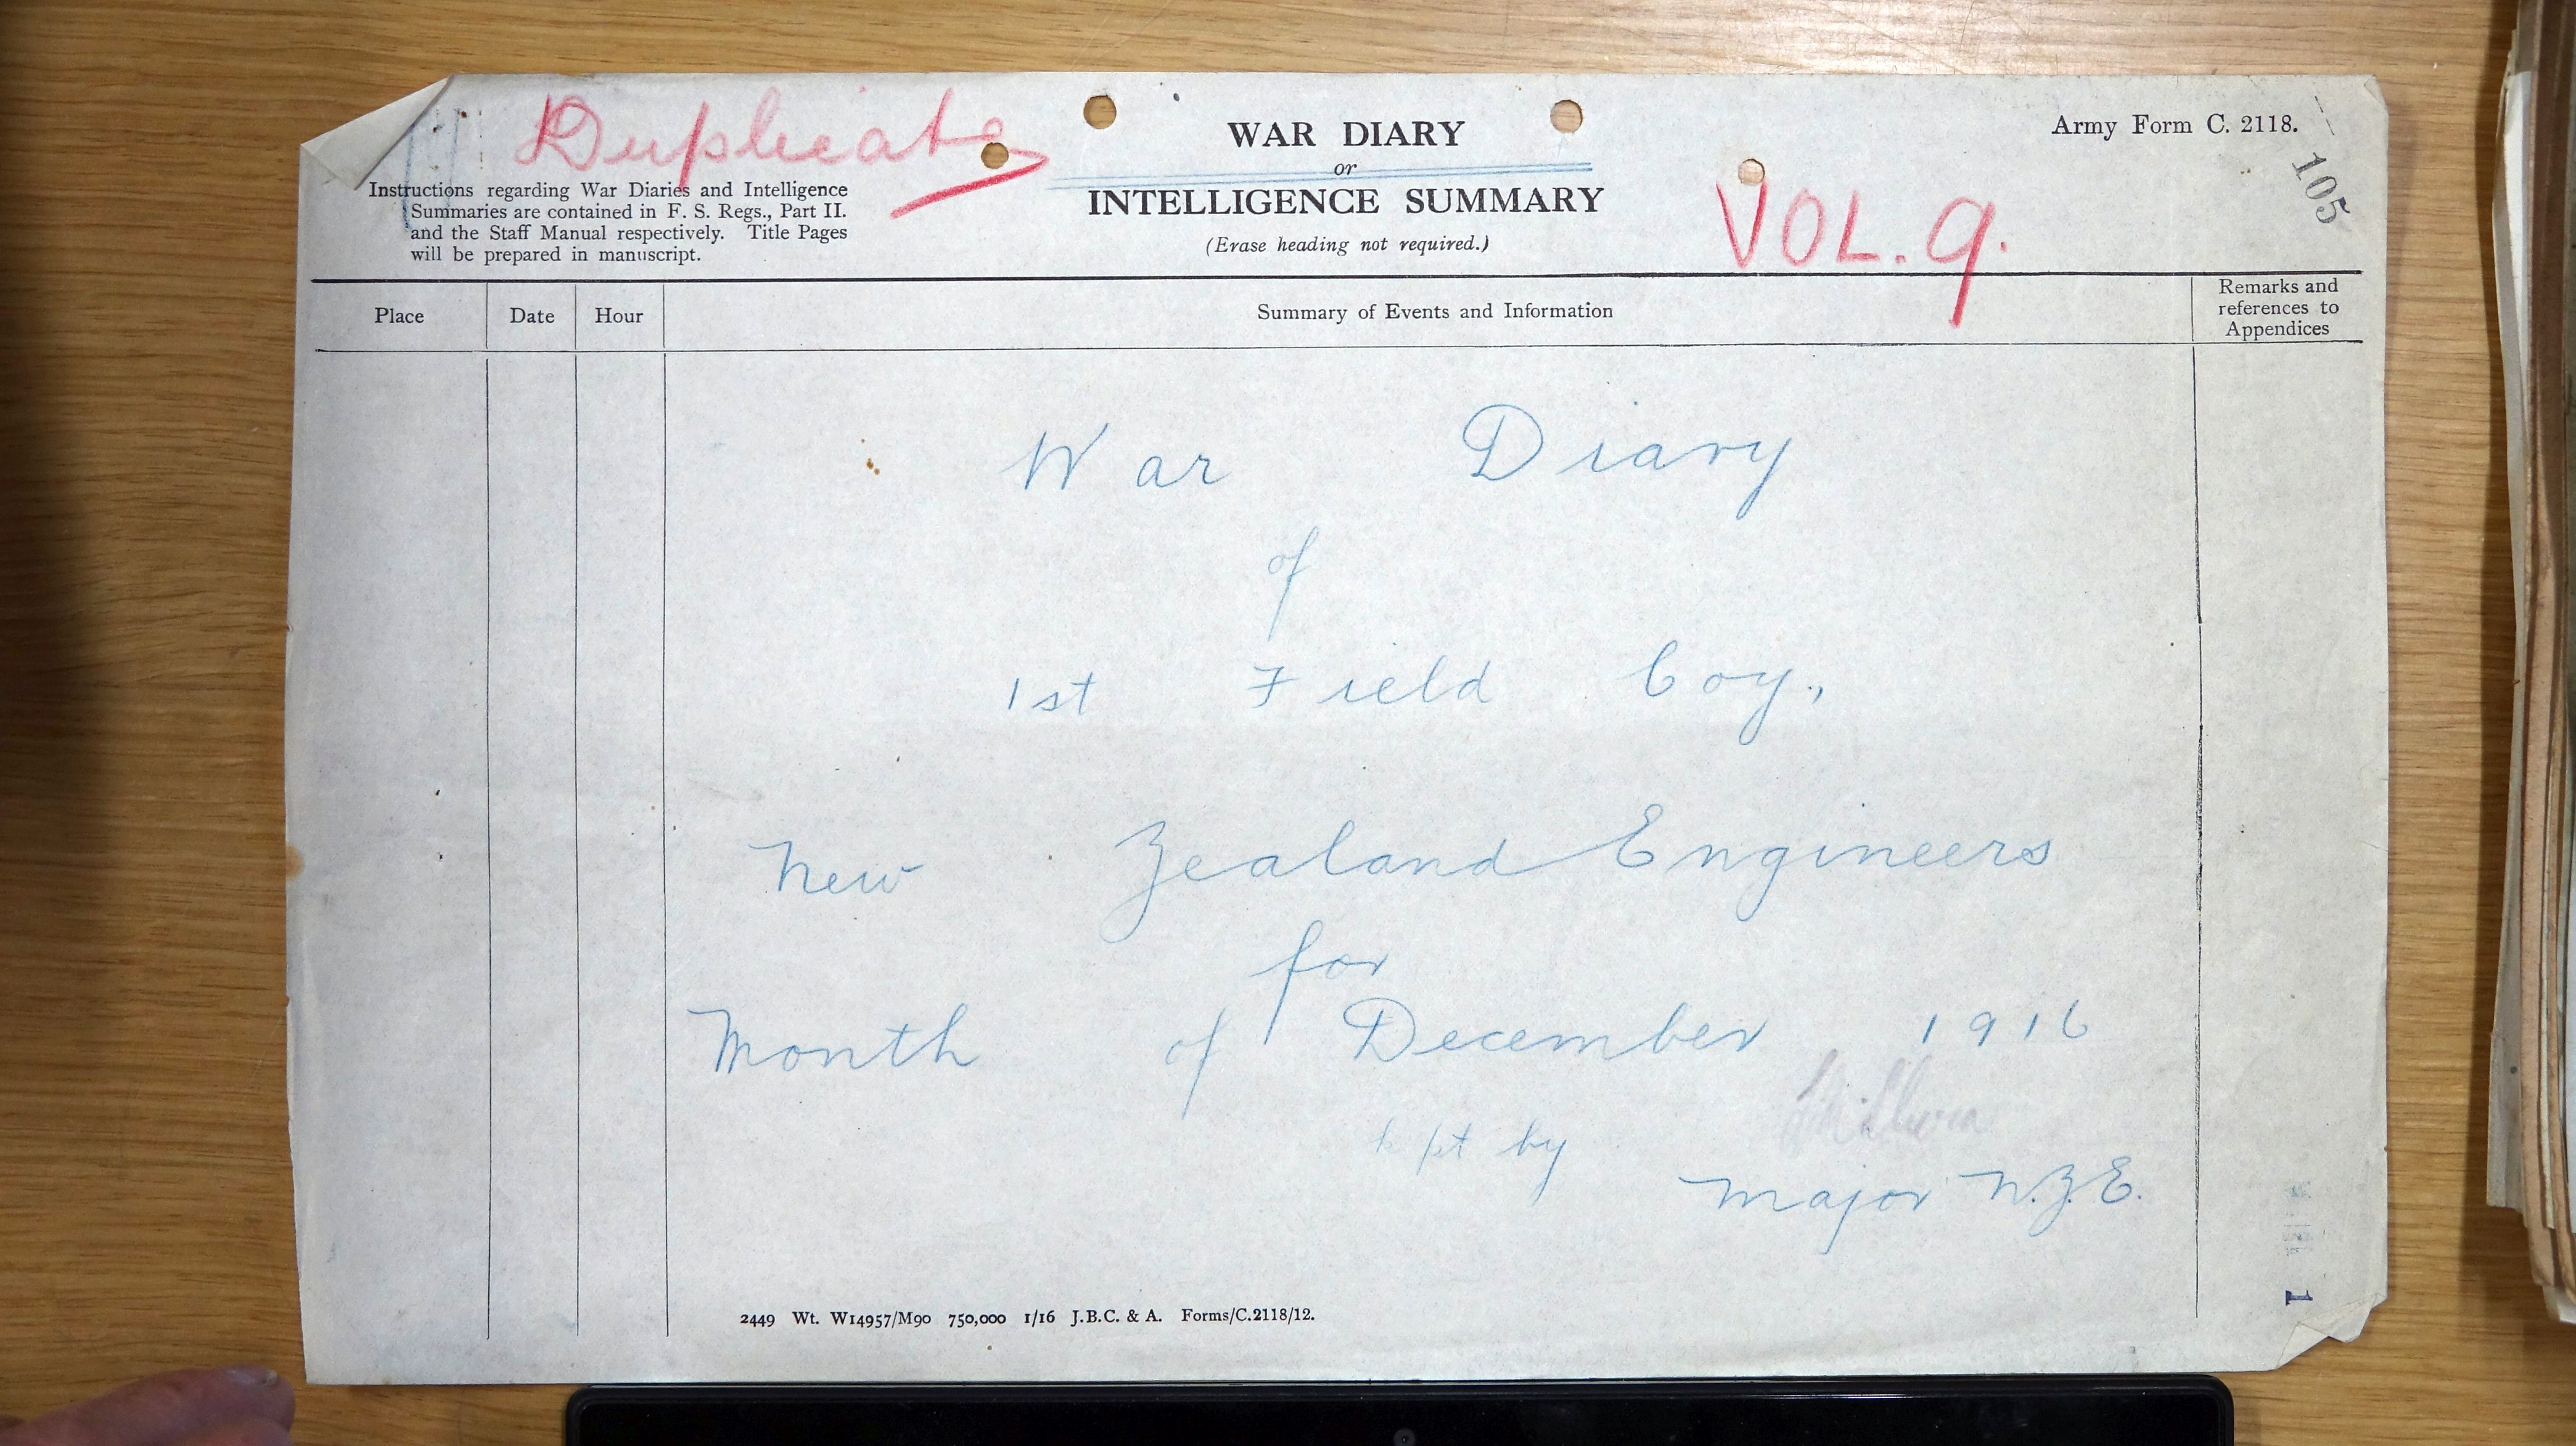 Duplicate
WAR DIARY
or
INTELLIGENCE SUMMARY
(Erase heading not required.)
Army Form C. 2118.
105
Instructions regarding War Diaries and Intelligence
Summaries are contained in F. S. Regs., Part II.
and the Staff Manual respectively. Title Pages
will be prepared in manuscript.
VOL. 9.
Place Date Hour Summary of Events and Information Remarks and
references to
Appendices
War Diary
of
1st Field Coy.,
New Zealand Engineers
for
Month of December 1916
kpt by
Major N.Z.E.
1
2449 Wt. W14957/M90 750,000 1/16 J.B.C. & A. Forms/C.2118/12.